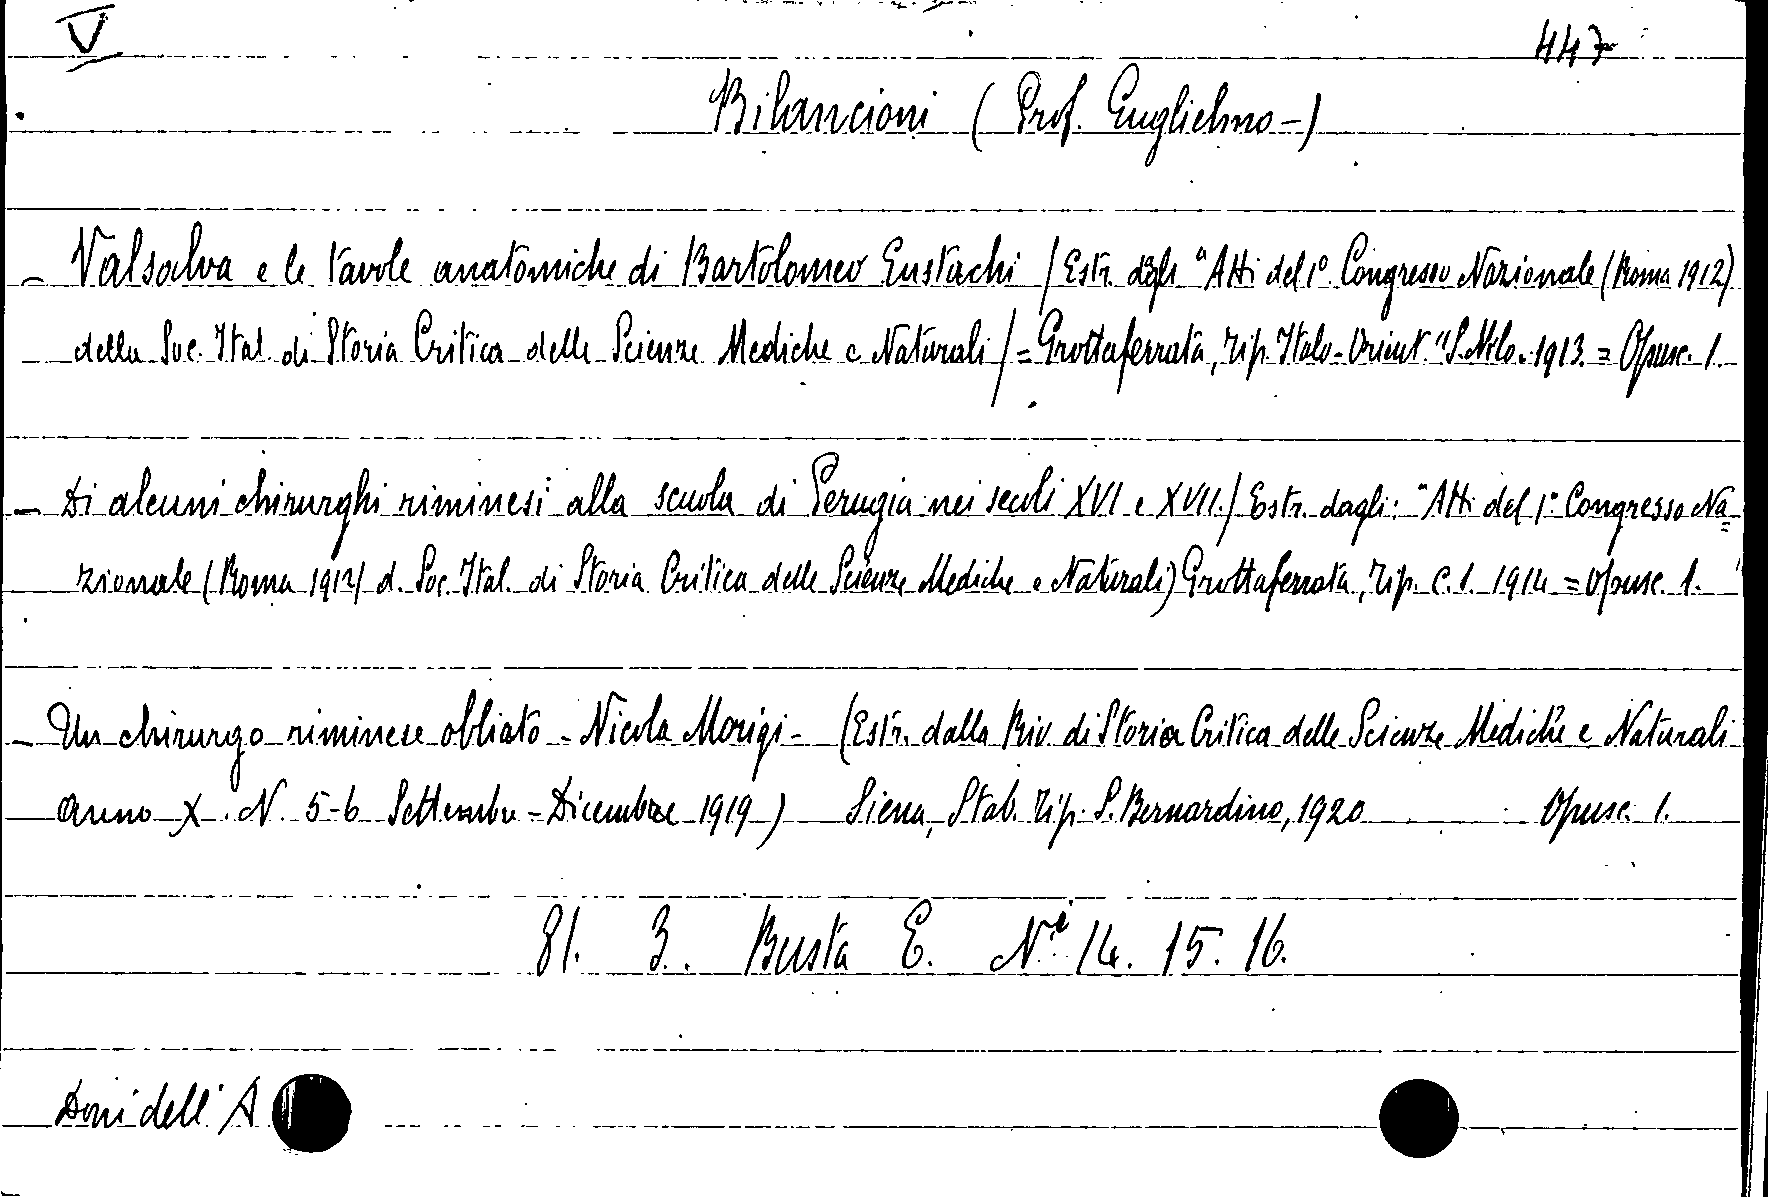 V
447
Bilancioni ( Prof. Guglielmo - )
- Valsalva e le tavole anatomiche di Bartolomeo Eustachi / Estr. dagli "Atti del 1º Congresso Nazionale (Roma 1912)
della Soc. Ital. di Storia Critica delle Scienze Mediche e Naturali / = Grottaferrata, tip. Italo-Orient. "S. Nilo. 1913. = Opusc. 1.
- Di alcuni chirurghi riminesi alla scuola di Perugia nei secoli XVI e XVII. / Estr. dagli: "Atti del 1º Congresso Na=
zionale (Roma 1912) d. Soc. Ital. di Storia Critica delle Scienze Mediche e Naturali) Grottaferrata, tip. c. 1. 1914 = Opusc. 1.
- Un chirurgo riminese obliato - Nicola Morigi - (Estr. dalla Riv. di Storia Critica delle Scienze Mediche e Naturali
Anno X. N. 5-6 Settembre - Dicembre 1919) Siena, Stab. tip. S. Bernardino, 1920 Opusc. 1.
81. 3. Busta E. Ni 14. 15. 16.
Doni dell'A